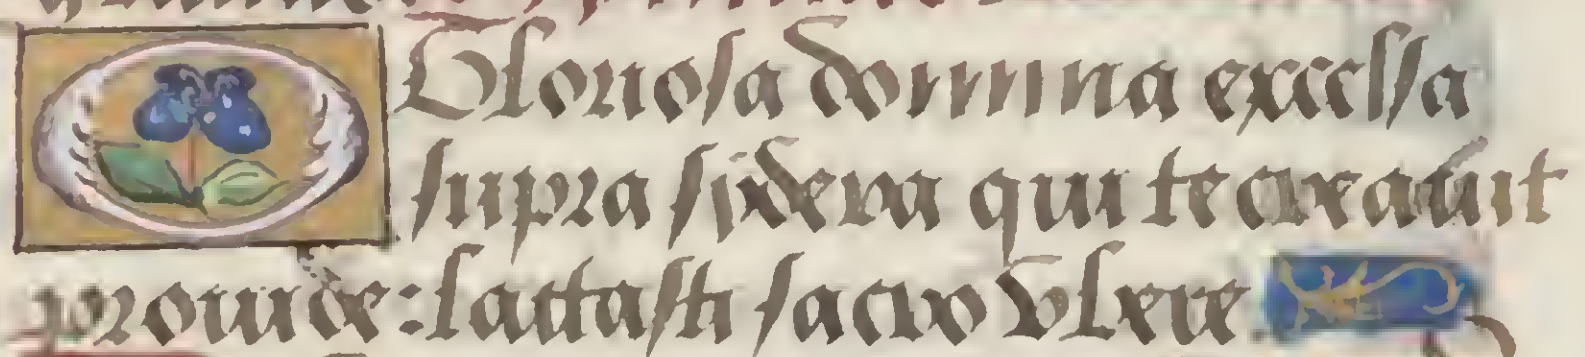 O Gloriosa domina excelsa
supra sidera qui te creauit
prouide: lactasti sacro vbere